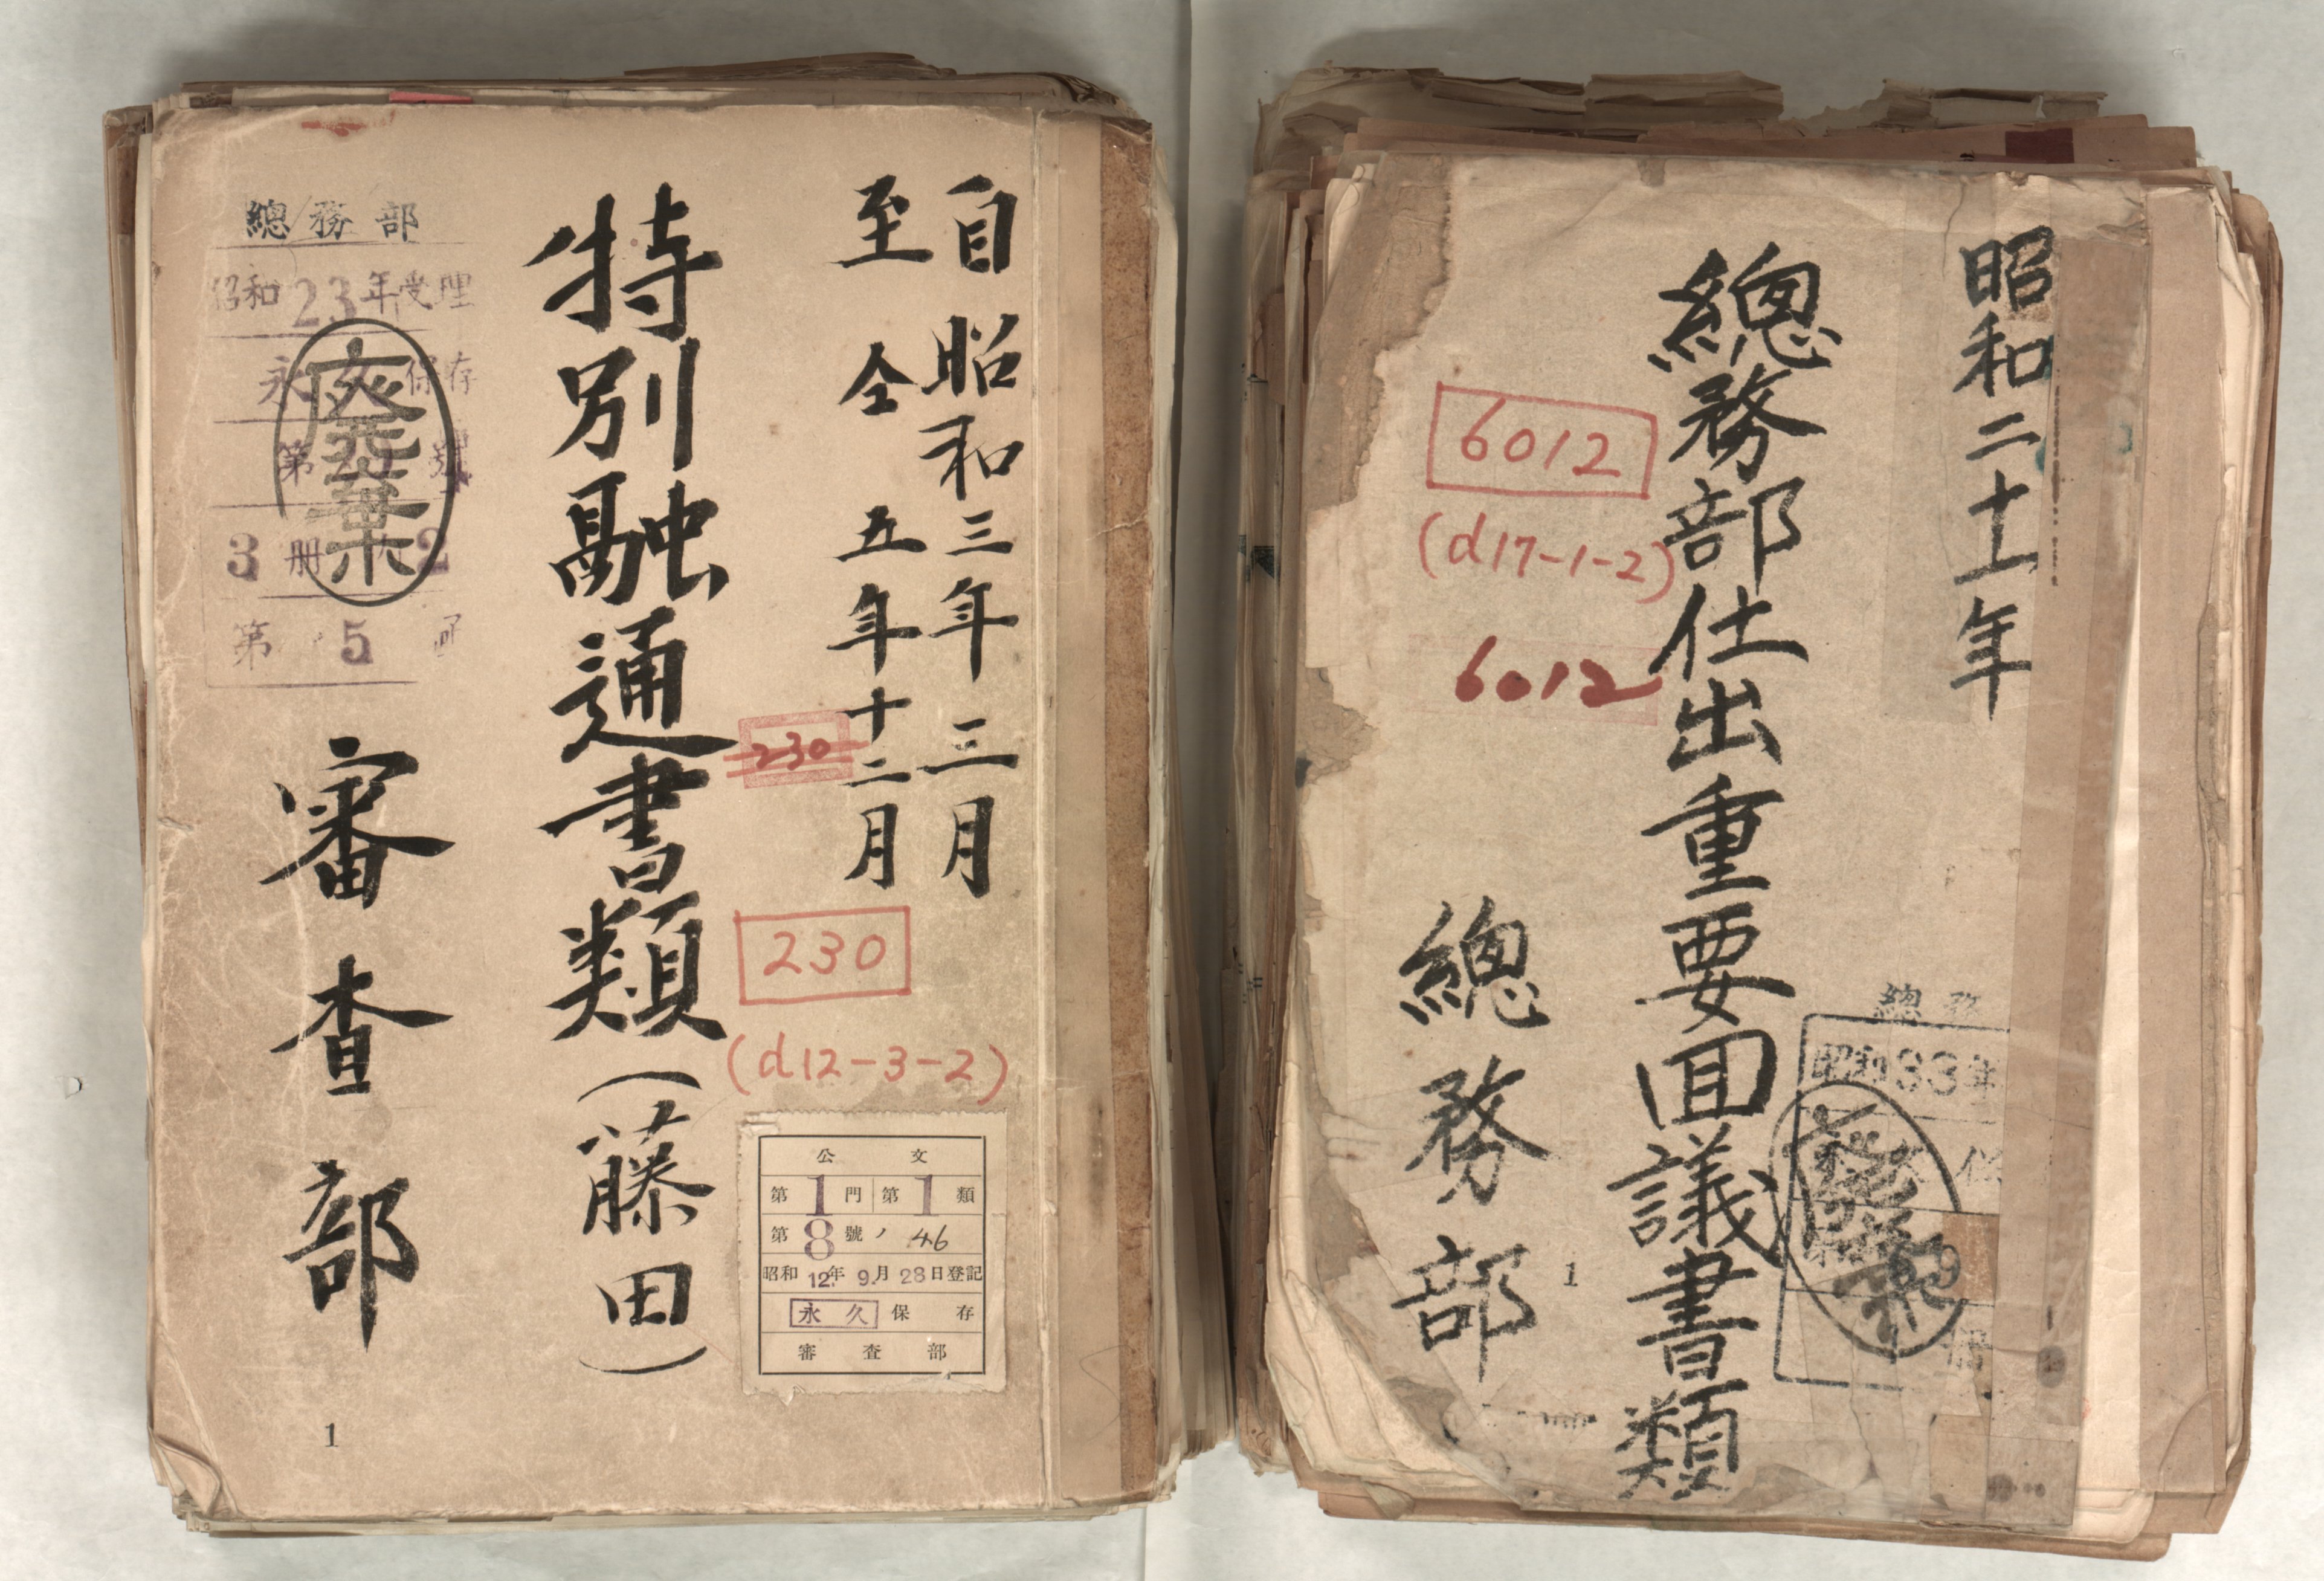 自昭和三年三月
至仝五年十二月
特別融通書類（藤田）
審査部
總務部
昭和23年受理
永久保存
第 號
3册 2
第5
廃棄
230
230
(d12-3-2)
公文
第1門第1類
第8號ノ46
昭和12年9月28日登記
永久保存
審査部
1
昭和二十一年
總務部仕出重要回議書類
總務部
6012
(d17-1-2)
6012
總務
昭和33年
廃棄
1